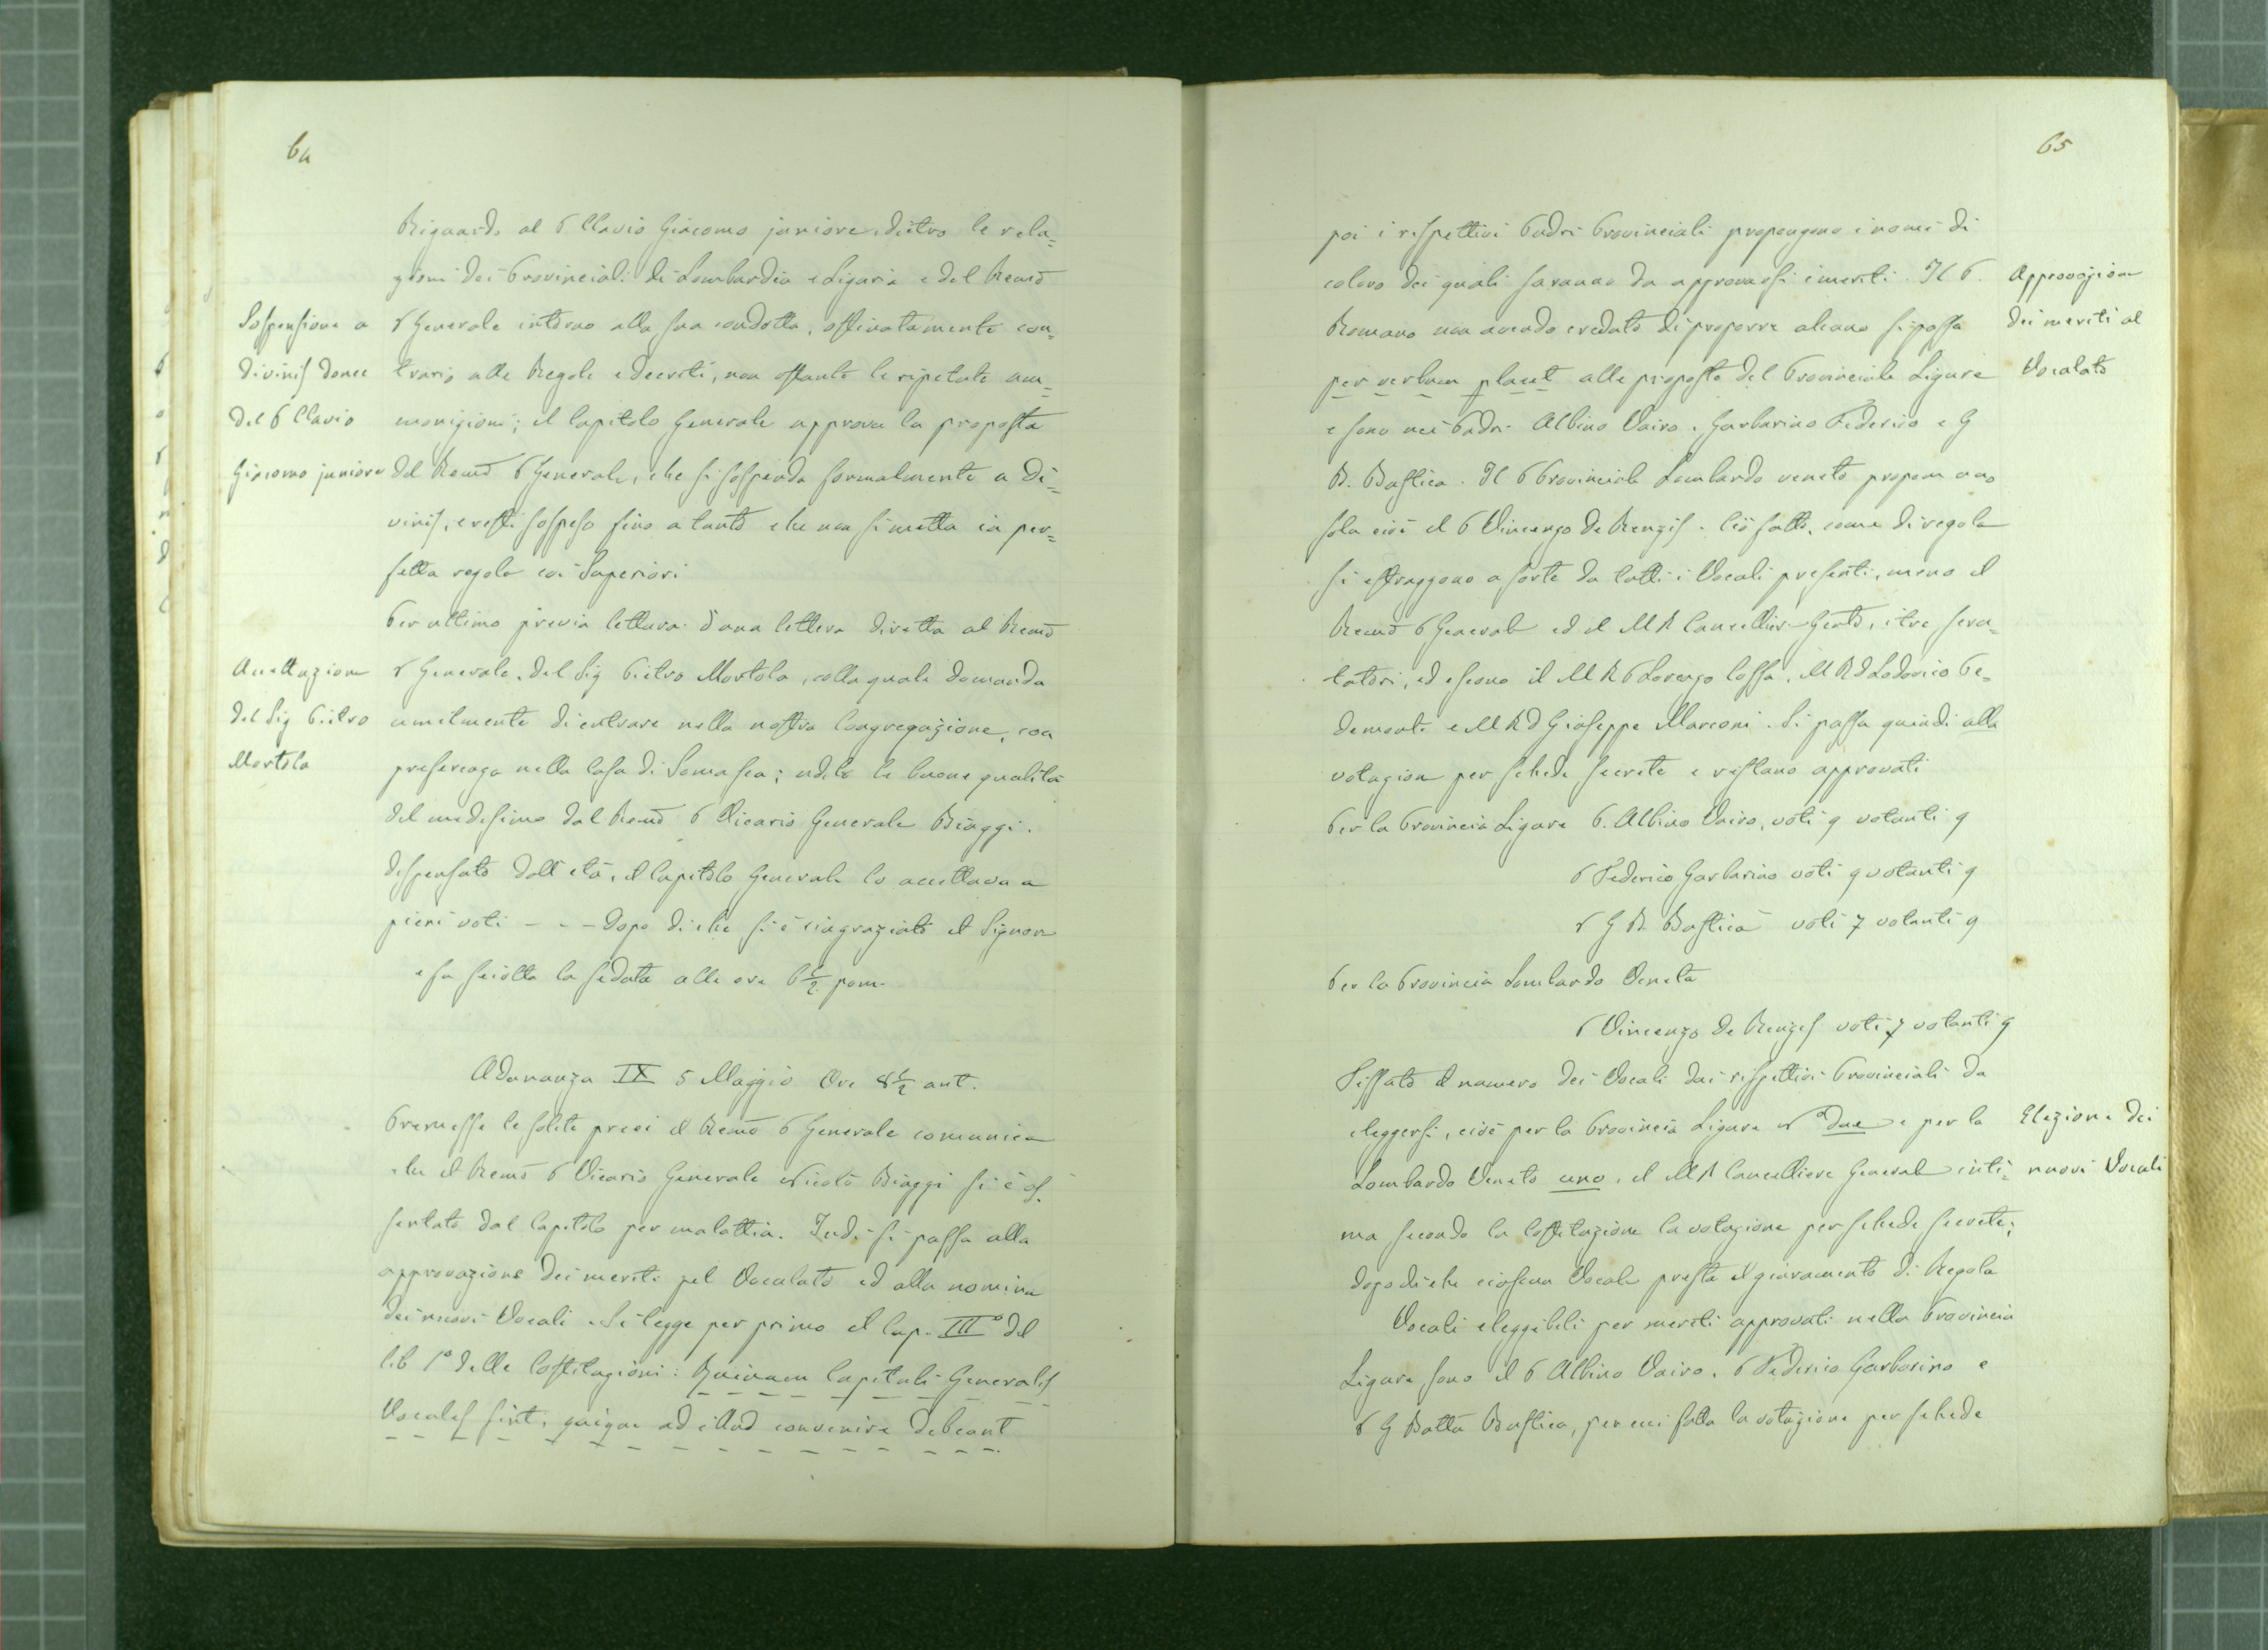 64
Riguardo al P Clavio Giacomo juniore, dietro le rela=
zioni dei Provinciali di Lombardia e Liguria e del Remo
Sospensione a
P Generale intorno alla sua condotta, ostinatamente con=
divinis donec
trario alle Regole e decreti, non ostante le ripetute am=
del P Clavio
monizioni; il Capitolo Generale approva la proposta
Giacomo juniore
del Remo P Generale, che si sospenda formalmente a di=
vinis, e resti sospeso fino a tanto che non si metta in per=
fetta regola coi Superiori
Per ultimo previa lettura d'una lettera diretta al Remo
Accettazione
P Generale, del Sig Pietro Mortola, colla quale domanda
del Sig Pietro
umilmente di entrare nella nostra Congregazione, con
Mortola
preferenza nella Casa di Somasca; udite le buone qualità
del medesimo dal Remo P Vicario Generale Biaggi.
dispensato dall'età, il Capitolo Generale lo accettava a
pieni voti - - - Dopo di che si è ringraziato il Signore
e fu sciolta la seduta alle ore 6 1/2 pom.
Adunanza IX 5 Maggio Ore 8 1/2 ant.
Premesse le solite preci il Remo P Generale comunica
che il Remo P Vicario Generale Nicolò Biaggi si è as=
sentato dal Capitolo per malattia. Indi si passa alla
approvazione dei meriti pel Vocalato ed alla nomina
dei nuovi Vocali. Si legge per primo il Cap. III° del
lib 1° delle Costituzioni: Quinam Capituli Generalis
Vocales sint, quique ad illud convenire debeant
65
poi i rispettivi Padri Provinciali propongono i nomi di
coloro dei quali saranno da approvarsi i meriti. Il P.
Approvazione
Romano non avendo creduto di proporre alcuno si passa
dei meriti al
per verbum placet alle proposte del Provinciale Ligure
Vocalato
e sono nei Padri Albino Vairo, Garbarino Federico e G
B. Bastica. Il P Provinciale Lombardo veneto propone uno
solo cioè il P Vincenzo De Renzis. Ciò fatto, come di regola
si estraggono a sorte da tutti i Vocali presenti, meno il
Remo P Generale ed il M R Cancelliere Gentò, i tre scru=
tatori, ed escono il M R P Lorenzo Cossa, M R D Lodovico Pe=
demonti e M R D Giuseppe Marconi. Si passa quindi alla
votazione per schede secrete e restano approvati
Per la Provincia Ligure P. Albino Vairo, voti 9 votanti 9
P Federico Garbarino voti 9 votanti 9
P G B. Bastica voti 7 votanti 9
Per la Provincia Lombardo Veneta
P Vincenzo De Renzis voti 7 votanti 9
Fissato il numero dei Vocali dai rispettivi Provinciali da
eleggersi, cioè per la Provincia Ligure N° due e per la
Elezione dei
Lombardo Veneto uno, il M R Cancelliere Generale inti=
nuovi Vocali
ma secondo la Costituzione la votazione per schede secrete;
dopo di che ciascun Vocale presta il giuramento di Regola
Vocali eleggibili per meriti approvati nella Provincia
Ligure sono il P Albino Vairo, P Federico Garbarino e
P G Batta Bastica, per cui fatta la votazione per schede